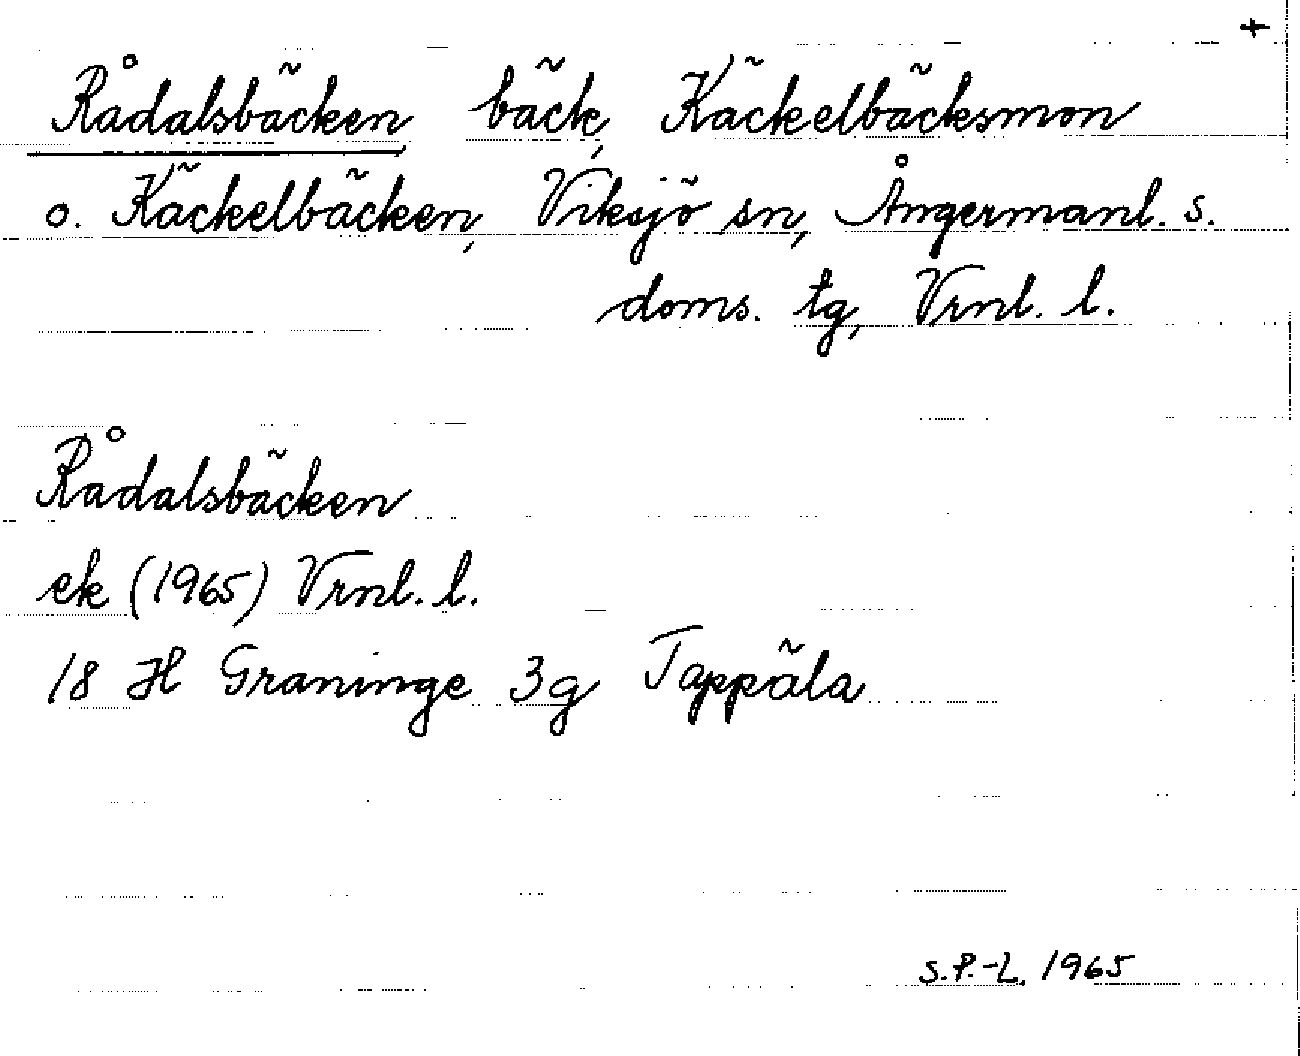 +
Rådalsbäcken, bäck, Käckelbäcksmon
o. Käckelbäcken, Viksjö sn, Ångermanl. s.
doms. tg, Vrnl. l.
Rådalsbäcken
ek (1965) Vrnl. l.
18 H Graninge 3g Tappäla
S.P.-L. 1965